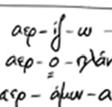 αερ - ίζ - ω -
αερ - ο - πλάν
αερο - άμυν - α